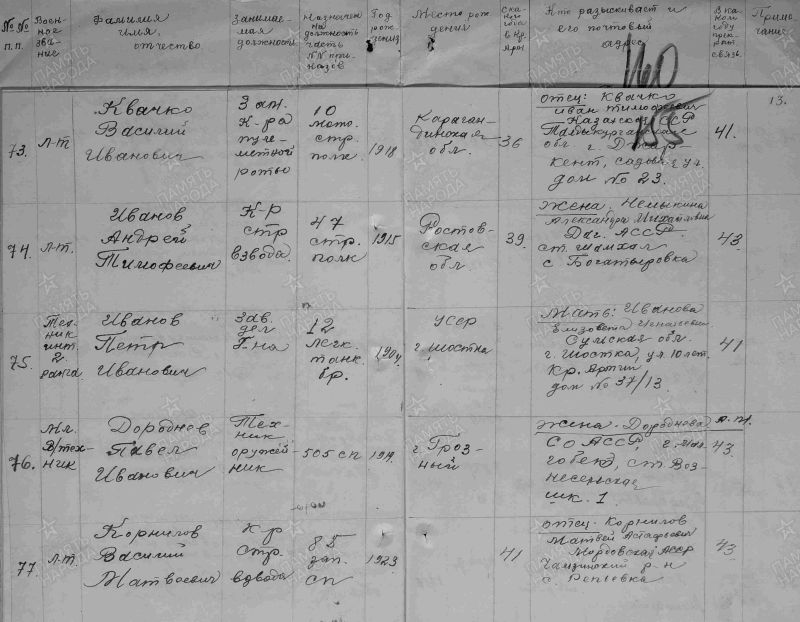 №№ п.п.
Воен-
ное
зва-
ние
Фамилия
имя,
отчество
Занимае-
мая
должность
Назначен
на
должность
часть
№№ при-
казов
Год
рожден.
Место рож-
дения
С ка-
кого
года
в Кр.
Арм.
Кто разыскивает и
его почтовый
адрес
В ка-
ком
году
прекр.
связь
Приме-
чание
13.
73.
Л-т
Квачко
Василий
Иванович
Зам.
К-ра
пуле-
метной
ротью
10
мото-
стр.
полк.
1918
Караган-
динская
обл.
36
отец: Квачко
Иван Тимофеевич
Казахская ССР
обл. г. Джар-
кент, садов. ул.
дом № 23.
41.
74.
Л-т.
Иванов
Андрей
Тимофеевич
К-р
стр
взвода
47
стр.
полк
1915
Ростов-
ская
обл.
39.
Жена. Немыкина
Александра Михайловна
Даг. АССР
ст. Шамхал
с Богатыровка
43
75.
Тех-
ник
инт.
2
ранга
Иванов
Петр
Иванович
Зав.
дел
б-на
12
легк.
танк.
бр.
1904
УССР
г. Шостка
Мать: Иванова
Елизовета Игнатьевна
Сумская обл.
г. Шостка, ул. 10 лет.
Кр. Армии
дом № 37/13.
41
76.
Мл.
В/тех-
ник
Дороднев
Павел
Иванович
Тех-
ник
оружей-
ник
505 сп
1914
г. Гроз-
ный
Жена. Дороднова
СОАССР, г. Мал-
гобек, ст. Воз-
несенская
шк. 1
43.
77.
Л-т.
Корнилов
Василий
Матвоевич
К-р
стр.
взвода
85
зап.
сп
1923
41
отец. Корнилов
Матвей Астафьевич
Мордовская АССР
Чамзинский р-н
с Репьевка
43
ПАМЯТЬ НАРОДА